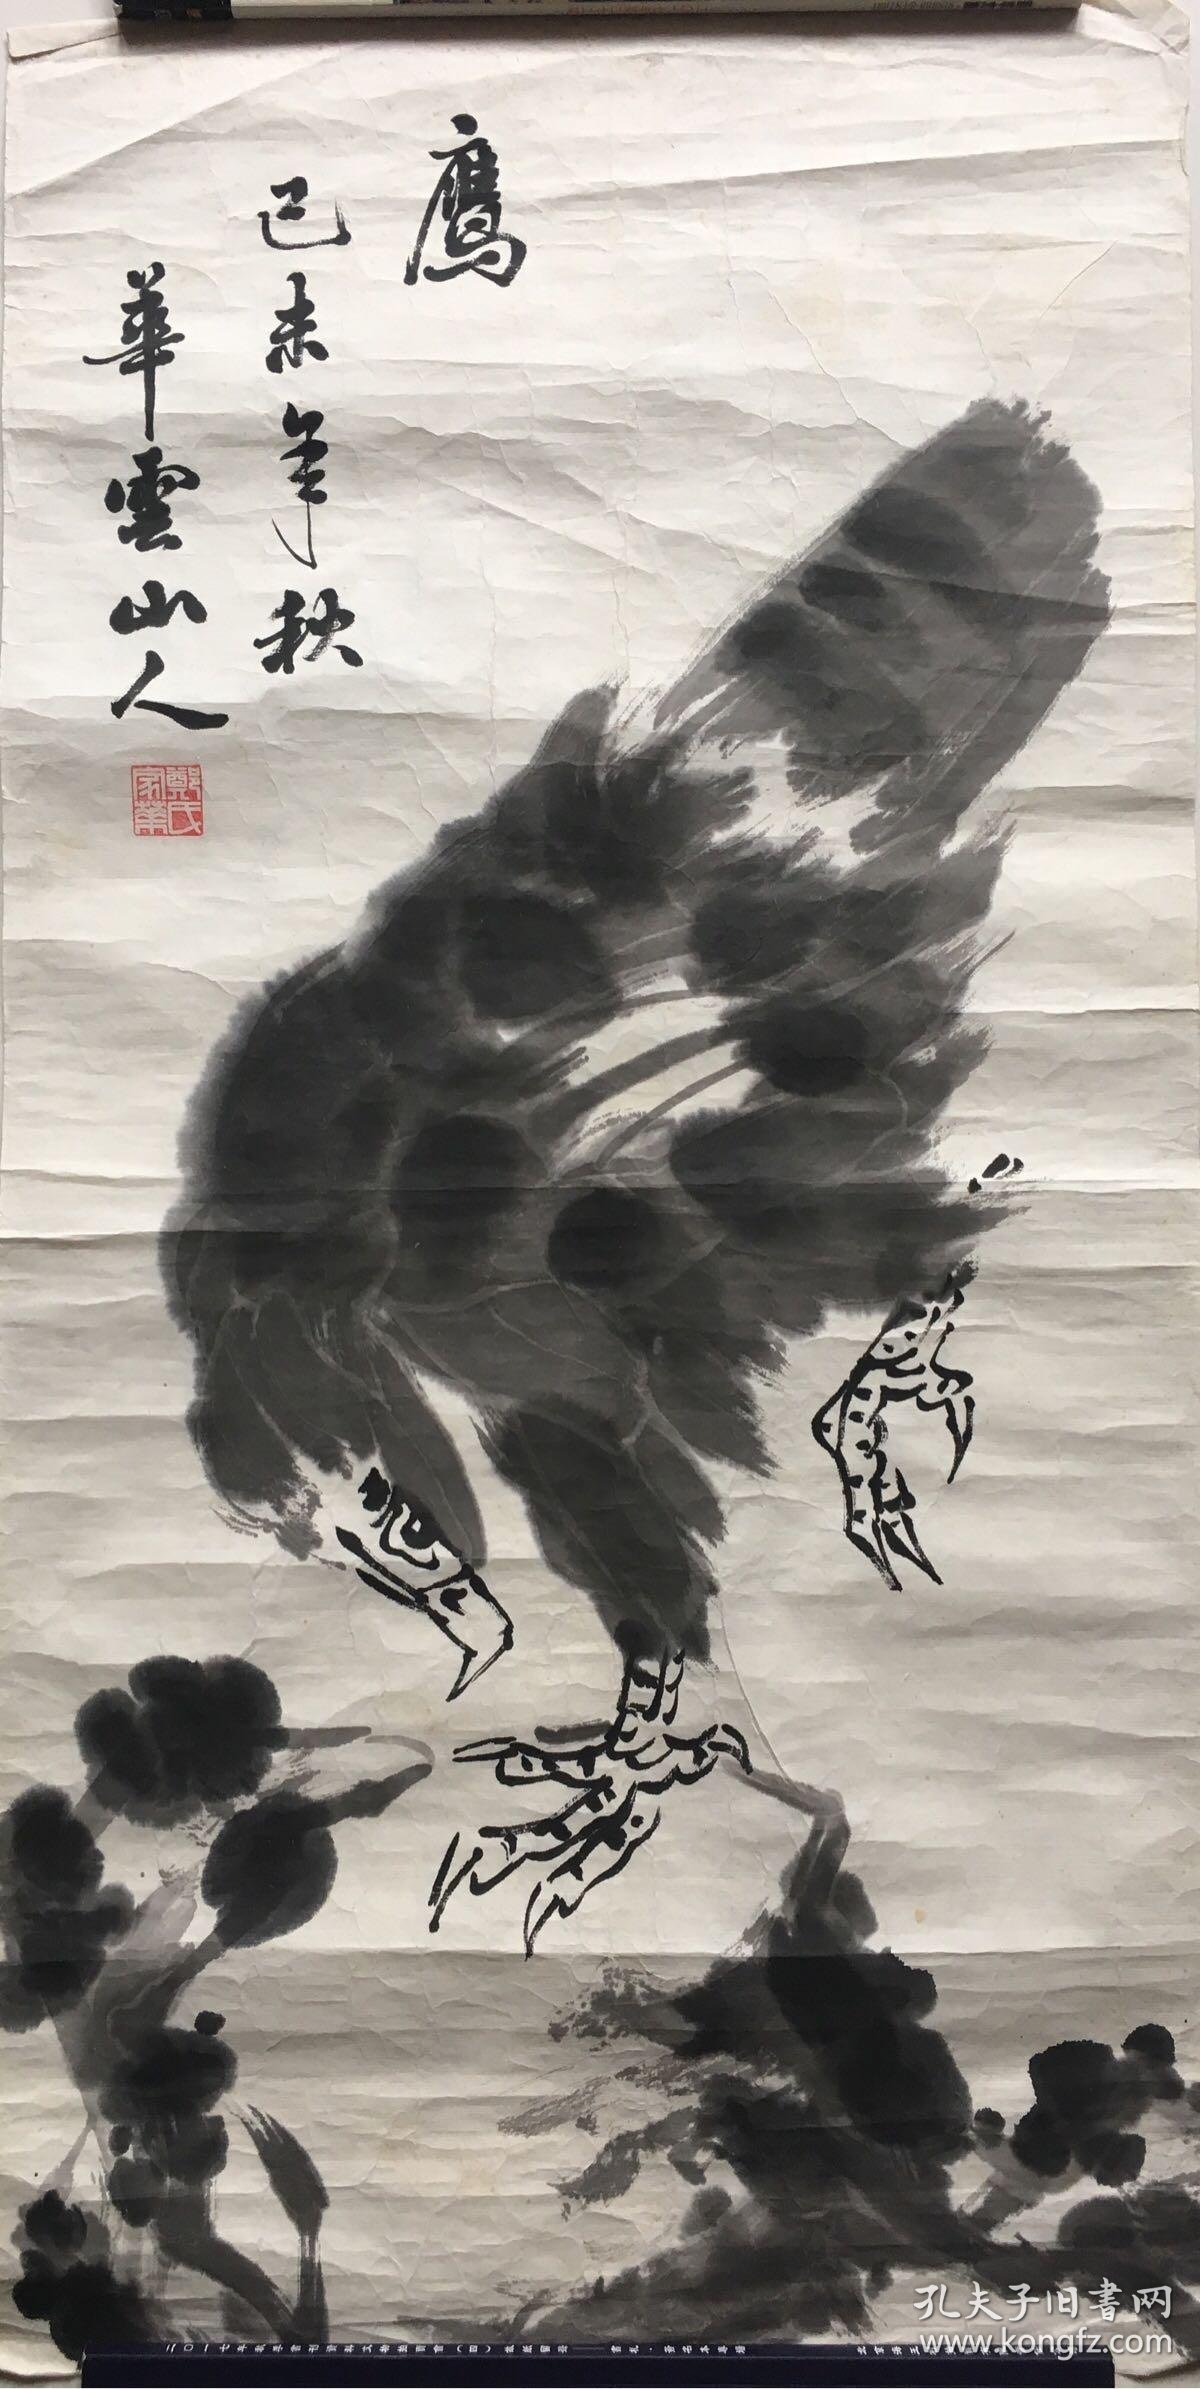 鹰
己未年秋
華雲山人
鄭氏
家華
孔夫子旧書网
www.kongfz.com